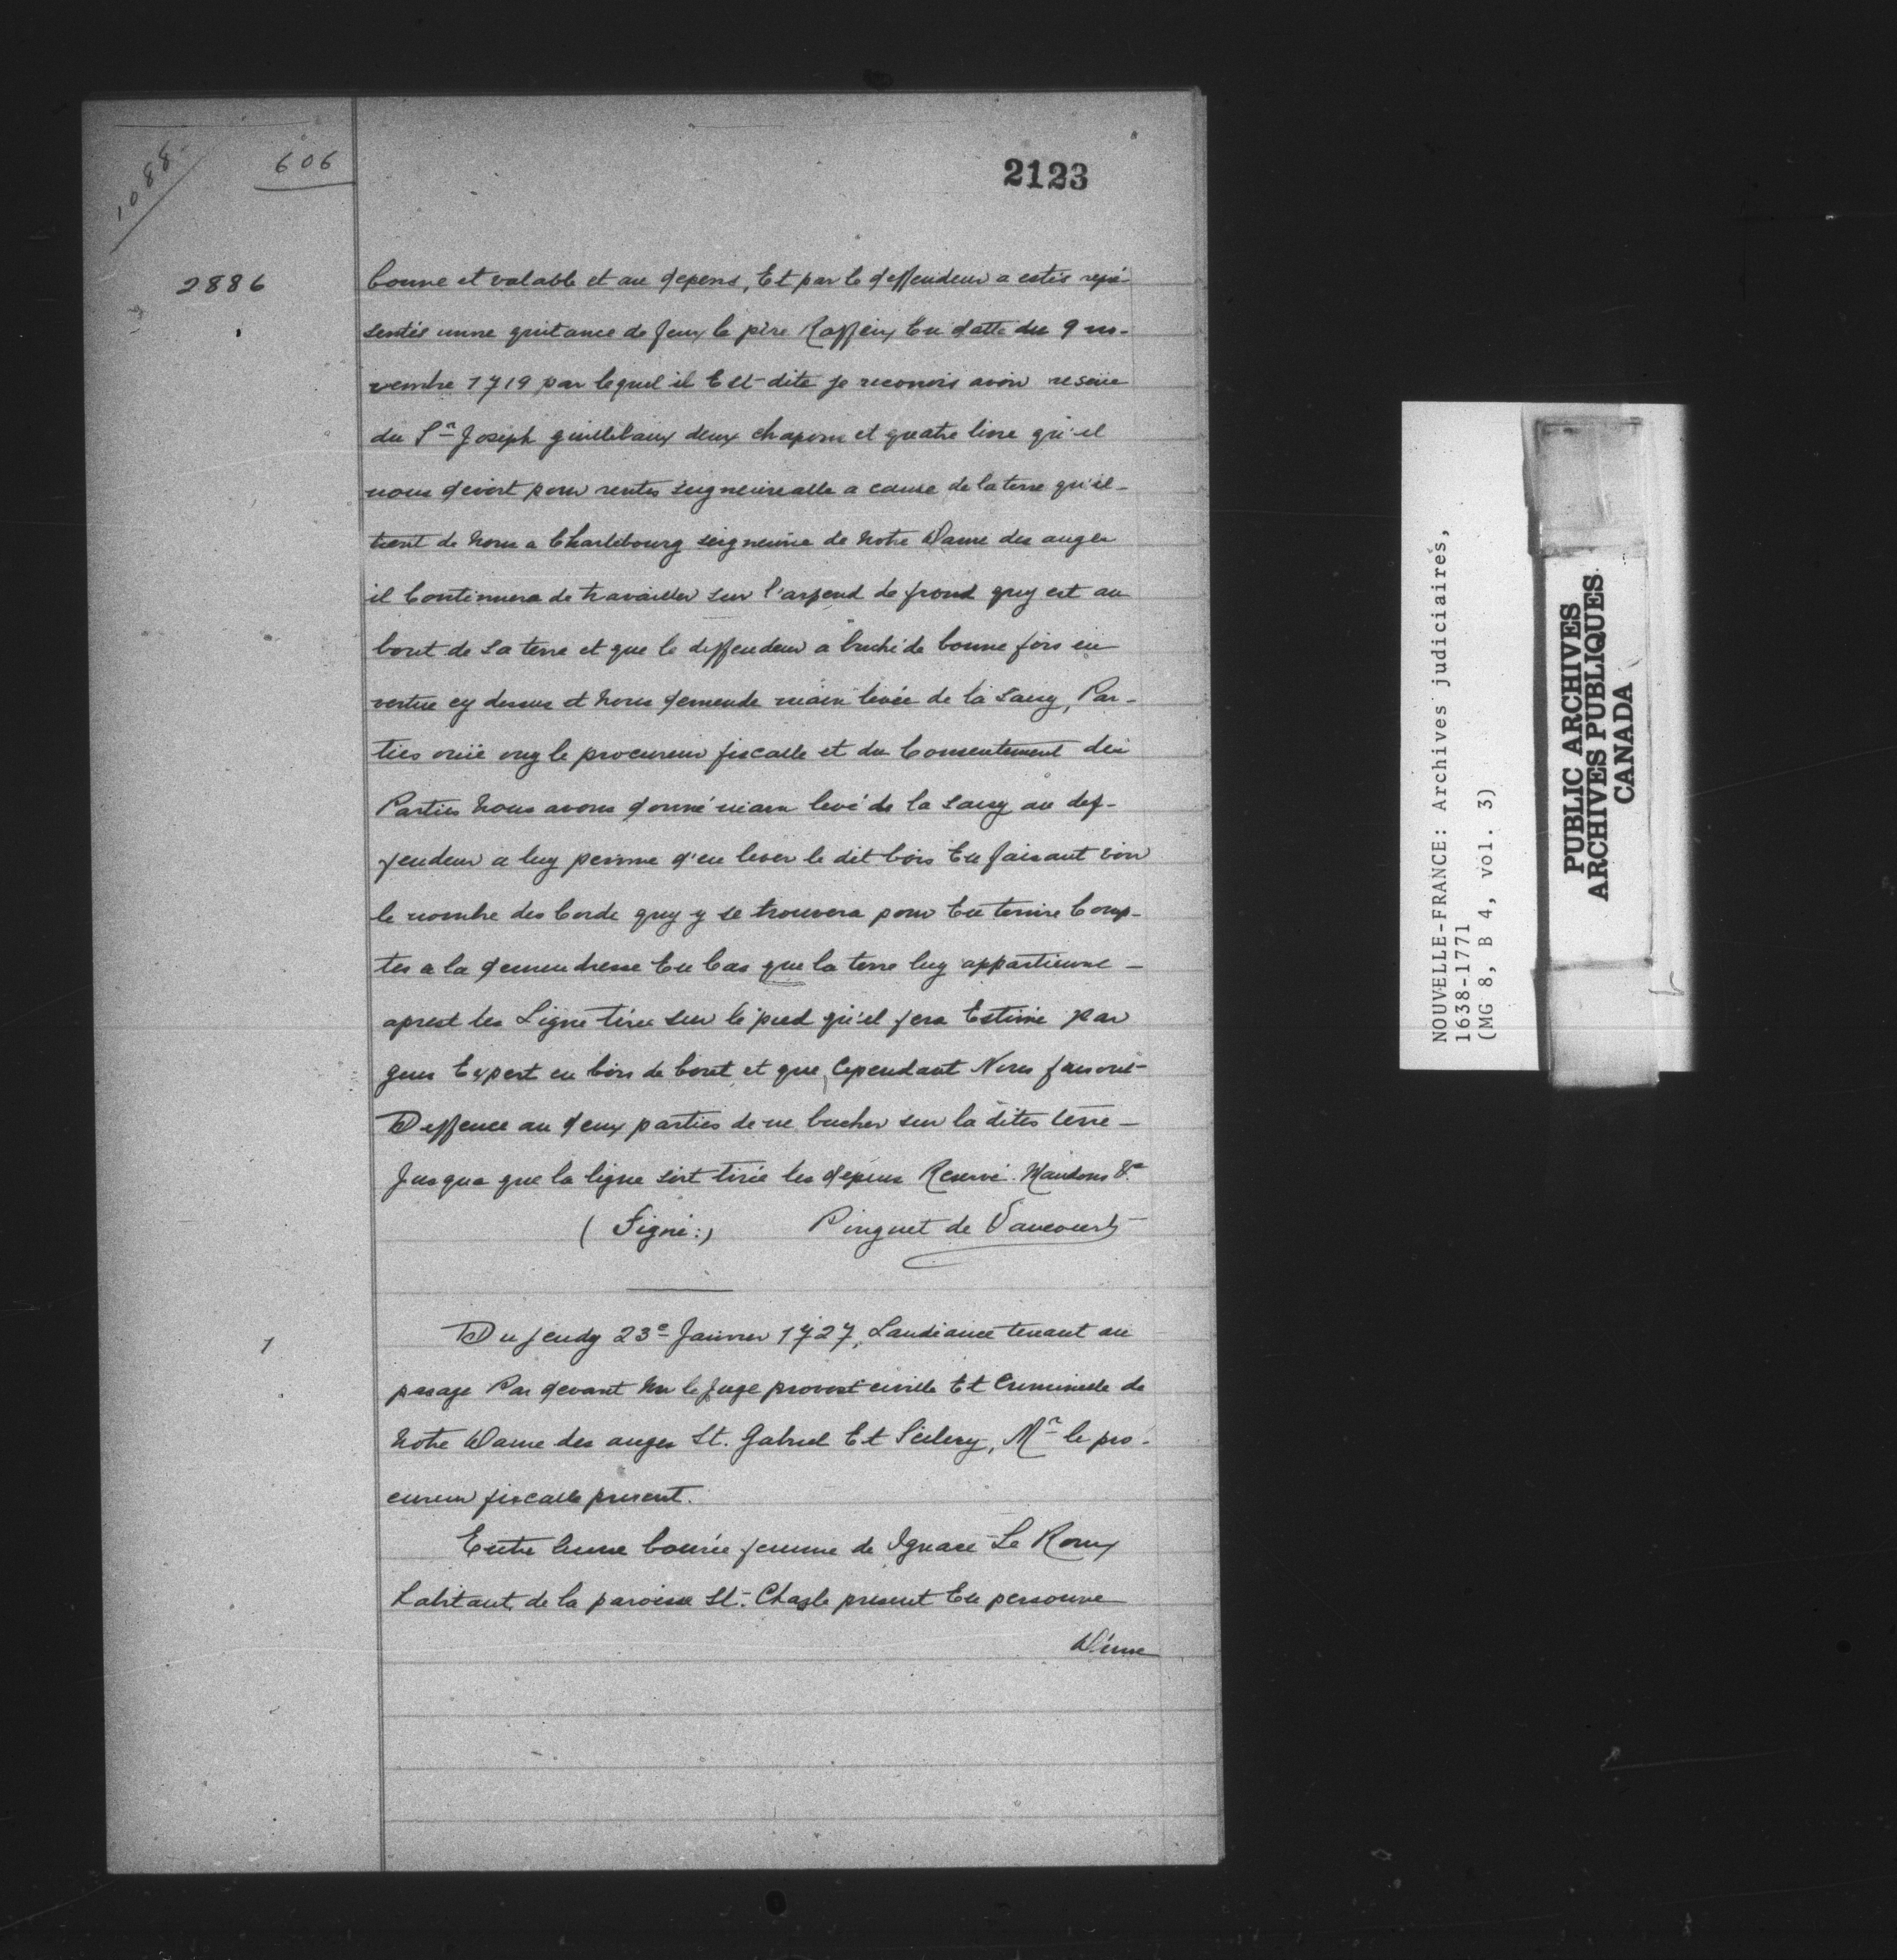 1088
606
2123
2886
bonne et valable et au depens, Et par le deffendeur a estés repré-
sentés unne quitance de feux le père Raffeix En datte du 9 no-
vembre 1719 par lequel il Est dite je reconois avoir reseüe
du Sr Joseph guillebaux deux chapons et quatre livre qu'il
nous devoit pour rentes seigneurealle a cause de la terre qu'il
tient de Nous a Charlebourg seigneurie de Notre Dame des anges
il Continuera de travailler sur l'arpend de frond quy est au
bout de sa terre et que le deffendeur a buché de bonne fois en
vertue cy dessus et Nous demende main levée de la saisy, Par-
ties ouïe ouy le procureur fiscalle et du Consentement des
Parties Nous avons donné main levé de la saisy au def-
fendeur a luy permie d'en lever le dit bois En faisant voir
le nombre des Corde quy y se trouvera pour En tenire Comp-
tes a la demendresse En Cas que la terre luy appartienne
aprest les Ligne tirée sur le pied qu'il sera Estimé par
gens Expert en bois de bout et que Cependant Nous faisons
Deffence au deux parties de ne bucher sur la dites terre
Jusqua que la ligne soit tirée les depens Reservé. Mandons &a
(Signé:) Pinguet de Vaucourt
1
Du jeudy 23e Janvier 1727, Laudiance tenant au
pasage Par devant Nn le Juge provost civille Et Criminelle de
Notre Dame des anges St. Gabriel Et Sillery, Mr le pro-
cureur fiscalle present.
Entre Anne bourée femme de Ignace Le Roux
habitant de la paroisse St. Chasle present En personne
D'une
NOUVELLE-FRANCE: Archives judiciaires,
1638-1771
(MG 8, B 4, vol. 3)
PUBLIC ARCHIVES
ARCHIVES PUBLIQUES
CANADA